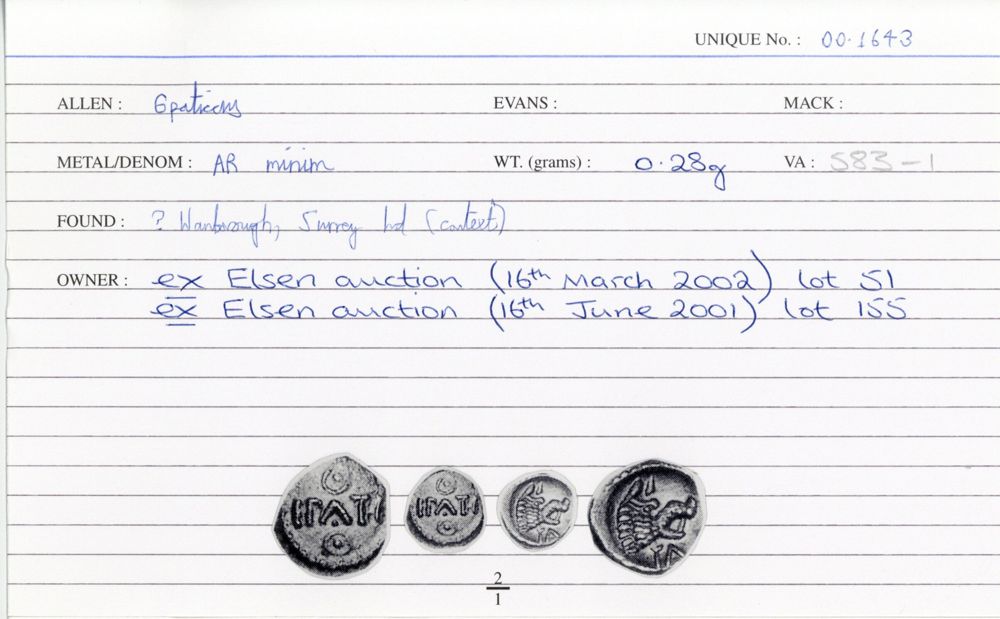 UNIQUE No. : 00.1643
ALLEN : Epaticcus EVANS : MACK :
METAL/DENOM : AR minim WT. (grams) : 0.28g VA : 583-1
FOUND : ? Wanborough, Surrey hd (context)
OWNER : ex Elsen auction (16th March 2002) lot 51
ex Elsen auction (16th June 2001) lot 155
2
1